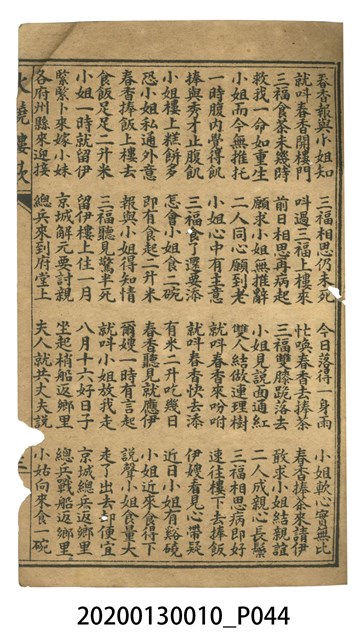 春香報與小姐知 三福相思仍未死 今日落得一身雨 小姐軟心實無比
就叫春香開樓門 叫過三福上樓來 忙喚春香去捧茶 春香捧茶來請伊
三福食茶未幾時 前日相思再病起 三福雙膝跪落去 敢求小姐結親誼
救我一命如重生 願求小姐無推辭 小姐見說面通紅 二人成親心長鬆
小姐而今無推托 二人同心願到老 雙人結做連理樹 三福相思病即好
一時腹內覺得飢 小姐心中有主意 就叫春香來吩咐 速往樓下去捧飯
捧與秀才止腹飢 三福食了還要添 就叫春香快去添 伊嫂看見心帶疑
小姐樓上糕餅多 怎會小姐食二碗 有米二升吃幾日 近日小姐有谿磽
恐小姐私通外意 即有食起二升米 春香聽見就應伊 小姐近來食得下
春香捧飯上樓去 報與小姐得知情 爾嫂一時有言起 說聲小姐食量大
食飯足足二升米 三福聽見驚半死 就叫小姐放我走 走了出去卻便宜
小姐一時就留伊 留伊樓上住一月 八月十六好日子 京城總兵返鄉里
緊緊卜來嫁小妹 京城解元要討親 坐起梢船返鄉里 總兵戰船返鄉里
各府州縣來迎接 總兵來到府堂上 夫人就共丈夫說 小姑向來食一碗
火燒樓歌
20200130010_P044